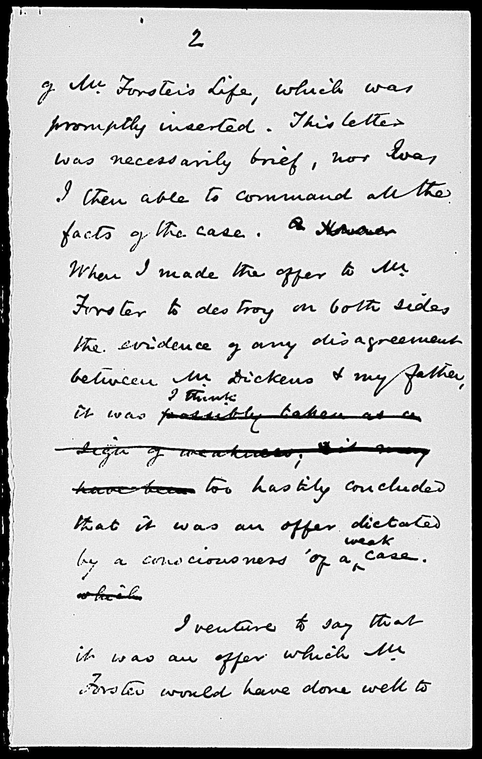 2
of Mr Forster's Life, which was
promptly inserted. This letter
was necessarily brief, nor was
I then able to command all the
facts of the case. However
When I made the offer to Mr
Forster to destroy on both sides
the evidence of any disagreement
between Mr Dickens & my father,
I think
it was possibly taken as a
sign of weakness; & it may
have been too hastily concluded
that it was an offer dictated
weak
by a consciousness of a case.
which
I venture to say that
it was an offer which Mr
Forster would have done well to